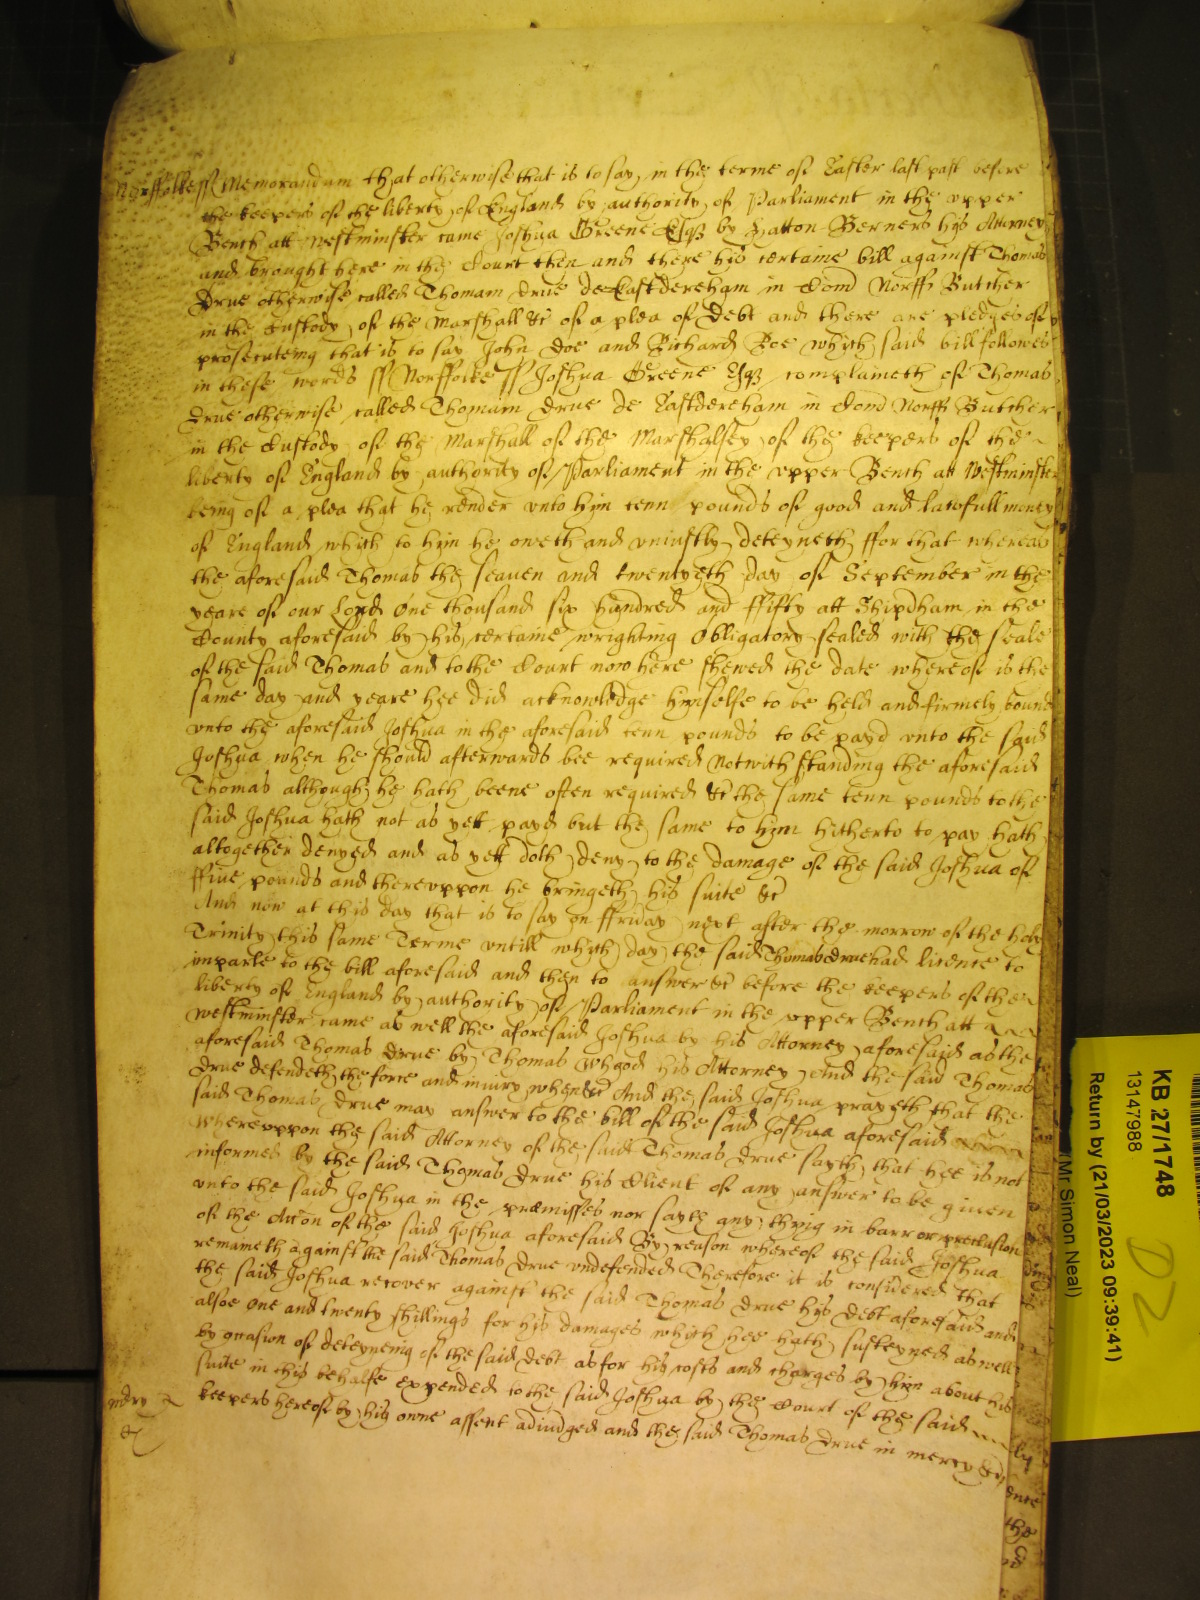 Norffolke ss Memorandum that otherwise that is to say in the terme of Easter last past before
the keepers of the liberty of England by authority of Parliament in the vpper
Bench att westminster came Joshua Greene Esqr by Hatton Berners his Attorney
and brought here in the Court then and there his certaine bill against Thomas
Drue otherwise called Thomam Drue de Eastdereham in Com Norff Butcher
in the Custody of the Marshall &c of a plea of Debt and there are pledges of
prosecuteing that is to say John Doe and Richard Roe which said bill followes
in these words ss Norffolke ss Joshua Greene Esqr complaineth of Thomas
Drue otherwise called Thomam Drue de Eastdereham in Com Norff Butcher
in the Custody of the Marshall of the Marshalsey of the keepers of the
liberty of England by authority of Parliament in the vpper Bench att Westminster
being of a plea that he render vnto him tenn pounds of good and lawfull money
of England which to him he oweth and vniustly deteyneth ffor that whereas
the aforesaid Thomas the seaven and twentyeth day of September in the
yeare of our Lord One thousand six hundred and ffifty att Shipdham in the
County aforesaid by his certaine wrighting Obligatory sealed with the seale
of the said Thomas and to the Court now here shewed the date whereof is the
same day and yeare hee did acknowledge himselfe to be held and firmely bound
vnto the aforesaid Joshua in the aforesaid tenn pounds to be payd vnto the said
Joshua when he should afterwards bee required Notwithstanding the aforesaid
Thomas although he hath beene often required &c the same tenn pounds to the
said Joshua hath not as yett payd but the same to him hitherto to pay hath
altogether denyed and as yett doth deny to the damage of the said Joshua of
ffiue pounds and therevppon he bringeth his suite &c
And now at this day that is to say on ffriday next after the morrow of the holy
Trinity this same Terme vntill which day the said Thomas Drue had licence to
imparle to the bill aforesaid and then to answer &c before the keepers of the
liberty of England by authority of Parliament in the vpper Bench att
westminster came as well the aforesaid Joshua by his Attorney aforesaid as the
aforesaid Thomas Drue by Thomas his Attorney And the said Thomas
Drue defendeth the force and iniury when &c And the said Joshua prayeth that the
said Thomas Drue may answer to the bill of the said Joshua aforesaid
Wherevppon the said Attorney of the said Thomas Drue sayth that hee is not
informed by the said Thomas Drue his Client of any answer to be given
vnto the said Joshua in the premisses nor sayth any thing in barr or preclusion
of the Accon of the said Joshua aforesaid By reason whereof the said Joshua
remaineth against the said Thomas Drue vndefended Therefore it is considered that
the said Joshua recover against the said Thomas Drue his Debt aforesaid and
alsoe One and twenty shillings for his damages which hee hath susteyned as well
by occasion of deteyneing of the said debt as for his costs and charges by him about his
suite in this behalfe expended to the said Joshua by the Court of the said
keepers hereof by his owne assent adiudged and the said Thomas Drue in mercy &c
mercy
&c
KB 27/1748
13147988
Return by (21/03/2023 09:39:41)
(Mr Simon Neal)
D2